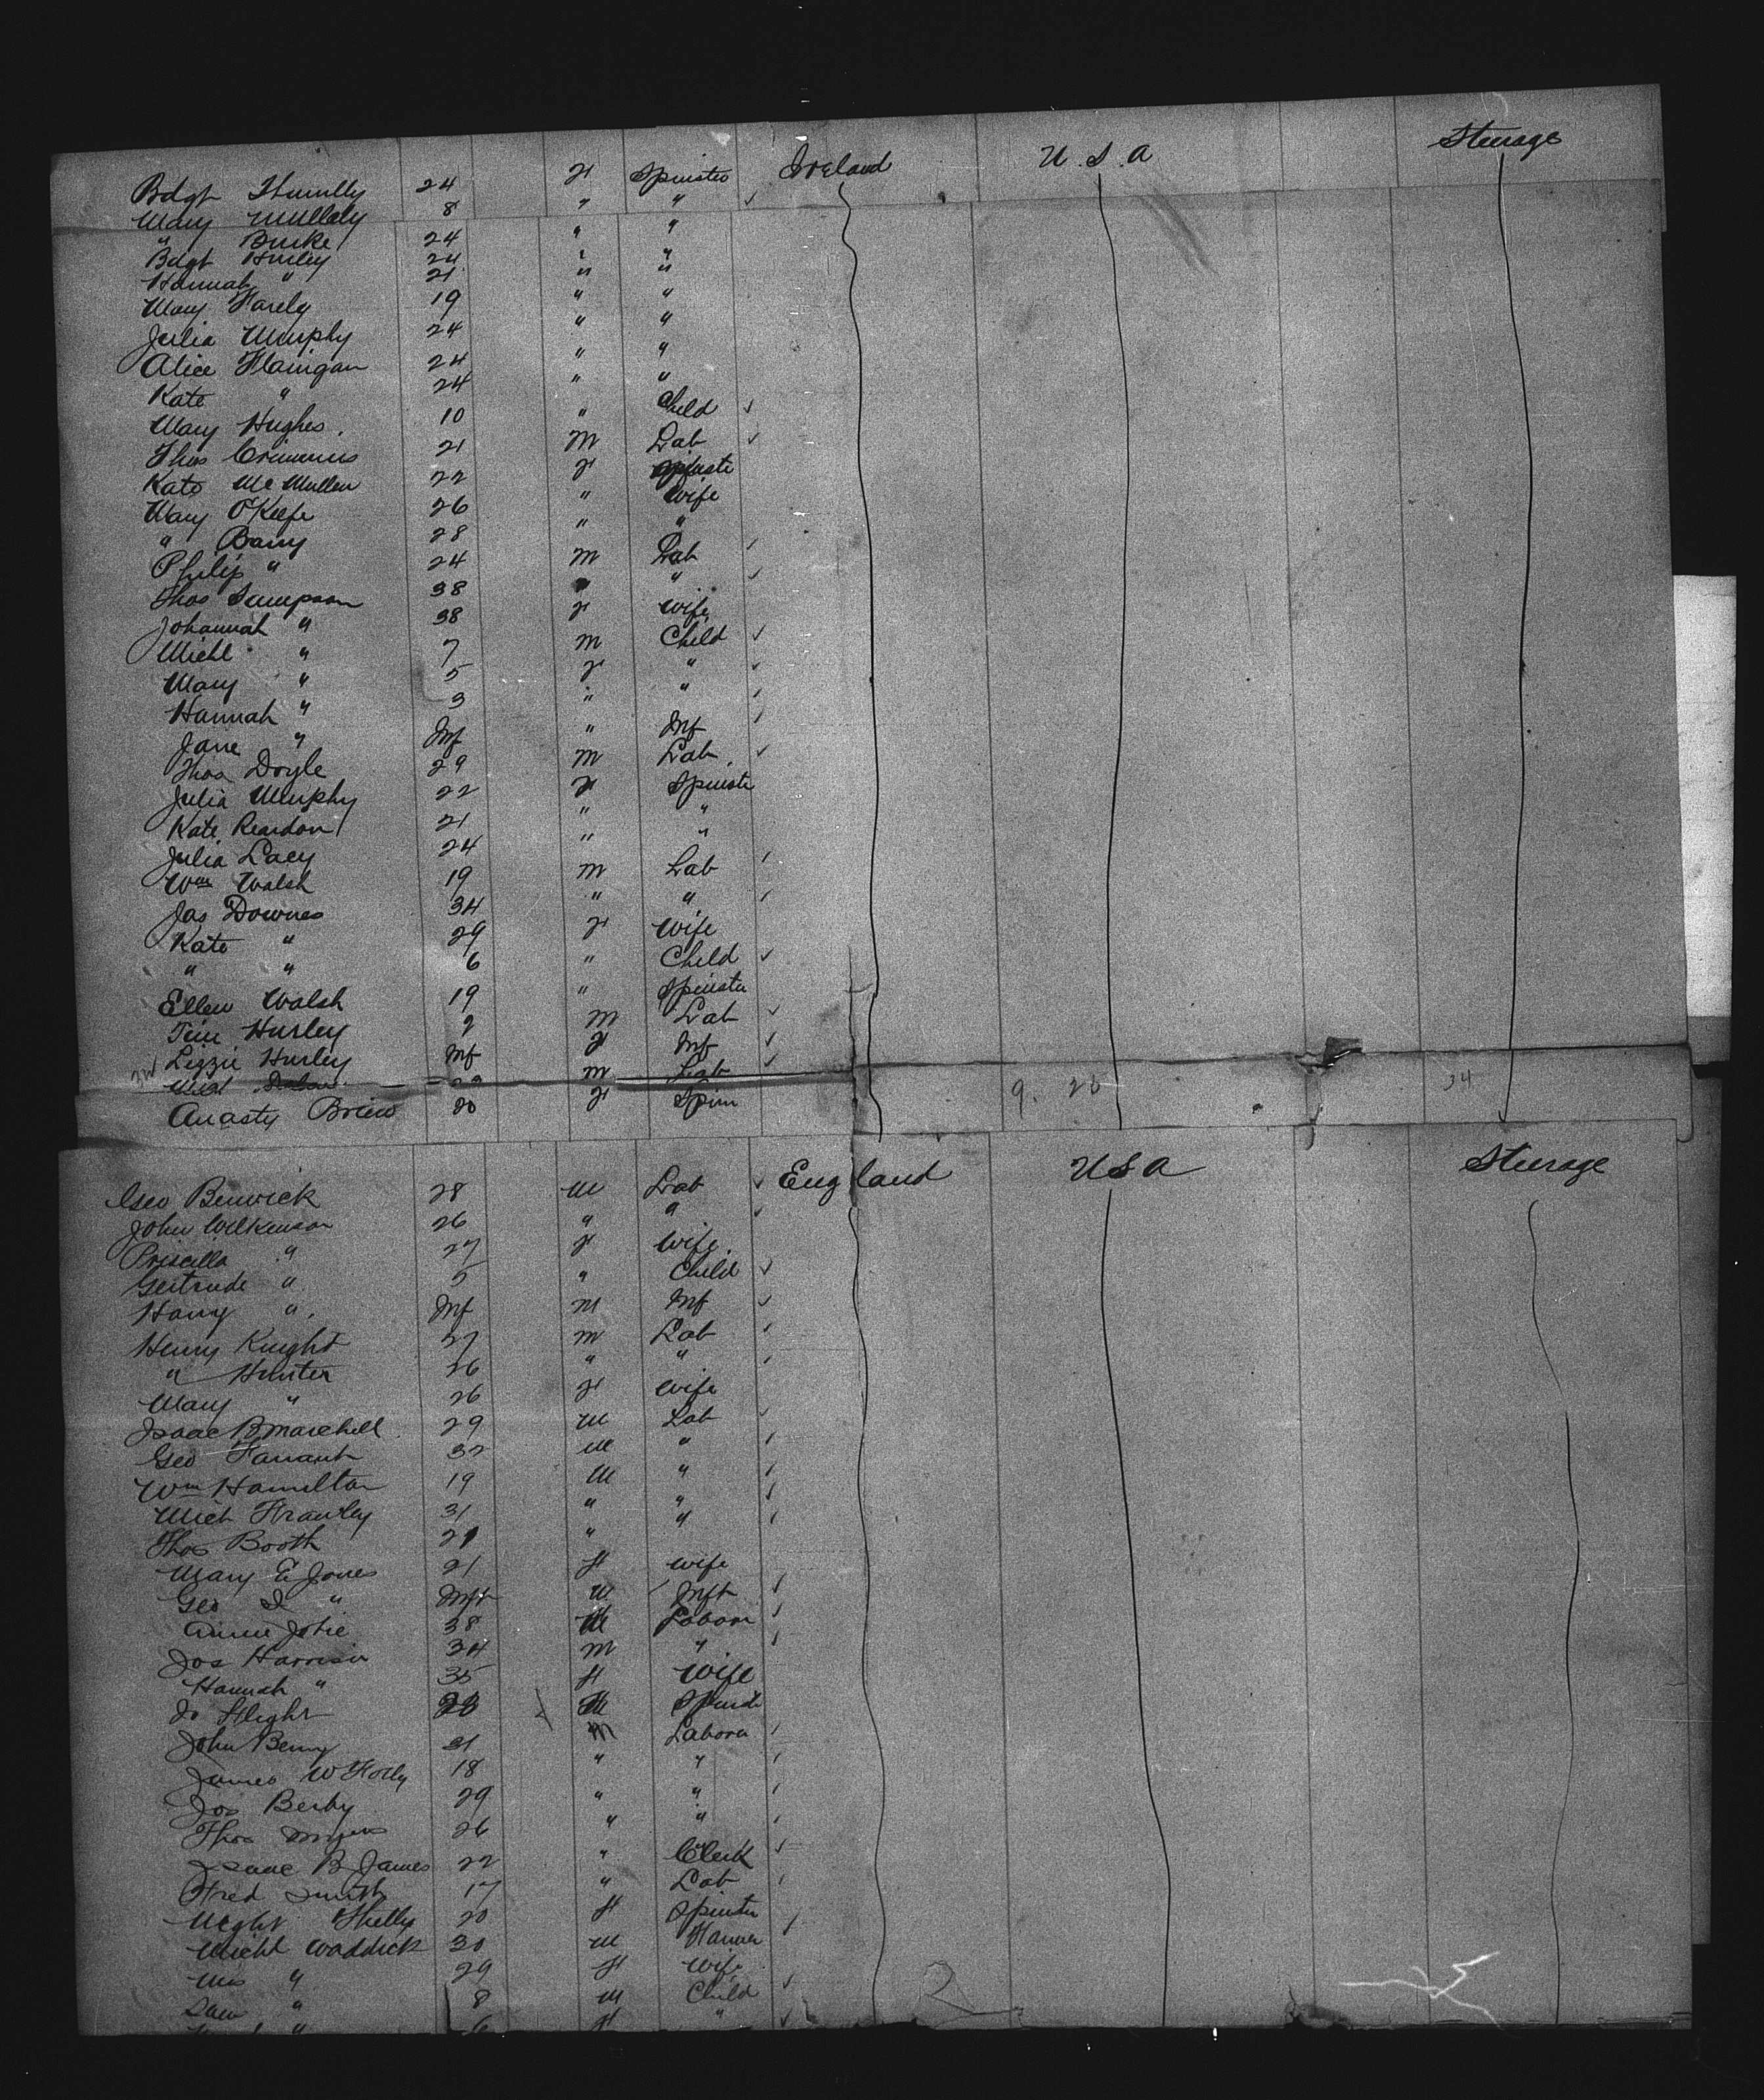 Bdgt 24 F Spinster Ireland U.S.A Steerage
Mary Mullaly 8 " "
" Burke 24 " "
Bdgt Hurley 24 " "
Hannah " 21 " "
Mary Farely 19 " "
Julia Murphy 24 " "
Alice Flanigan 24 " "
Kate " 24 " "
Mary Hughes 10 " Child
Thos Crimmins 21 M Lab
Kate McMullen 22 F Spinste
Mary O'Keefe 26 " Wife
" Barry 28 " "
Philip " 24 M Lab
Thos Sampson 38 " "
Johannah " 38 F Wife
Michl " 7 M Child
Mary " 5 F "
Hannah " 3 " "
Jane " Inf " Inf
Thos Doyle 29 M Lab
Julia Murphy 22 F Spinste
Kate Reardon 21 " "
Julia Lacy 24 " "
Wm Walsh 19 M Lab
Jas Downes 34 " "
Kate " 29 F Wife
" " 6 " Child
Ellen Walsh 19 " Spinster
Tim Hurley 2 M Lab
Lizzie Hurley Inf F Inf
M Lab
Anasty Brien 20 F Spin 9. 34
Geo Benwick 28 M Lab England USA Steerage
John Wilkinson 26 " "
Priscilla " 27 F Wife
Gertrude " 5 " Child
Harry " Inf M Inf
Henry Knight 27 M Lab
" Hunter 26 " "
Mary " 26 F Wife
Isaac B Marchell 29 M Lab
Geo Farrant 32 M "
Wm Hamilton 19 M "
Mich Frawley 31 " "
Thos Booth 21 " "
Mary E Jones 21 F Wife
Geo I " Inft M Inft
38 M Labor
Jos Harrison 34 M "
Hannah " 35 F Wife
Jo Hight 28 Spinst
John Berry 21 M Labora
James W 18 " "
Jos Berby 29 " "
Thos 26 " "
Isaac B James 22 " Clerk
Fred Smith 17 " Lab
Shelly 20 F Spinster
Michl Waddick 30 M Farmer
Mrs " 29 F Wife
Sam " 8 M Child
" 6 F "